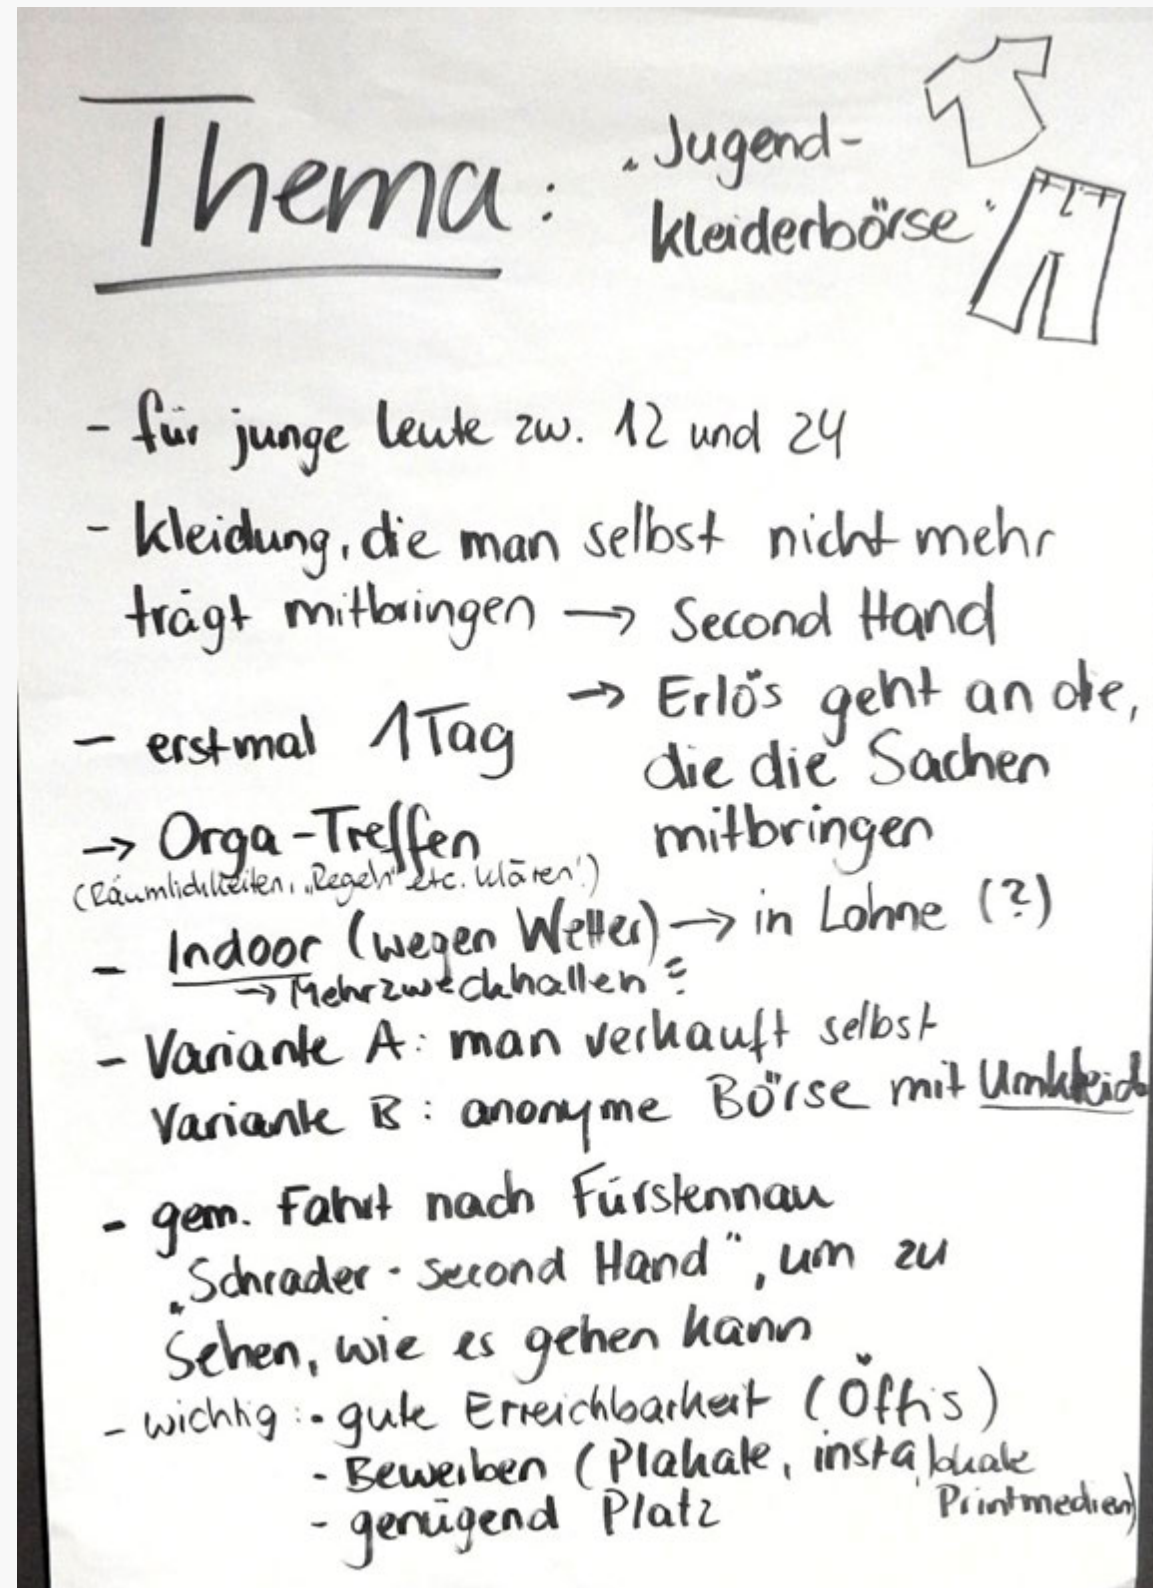 Thema: „Jugend-
kleiderbörse"
- für junge Leute zw. 12 und 24
- Kleidung, die man selbst nicht mehr
trägt mitbringen → Second Hand
→ Erlös geht an die,
die die Sachen
mitbringen
- erstmal 1 Tag
→ Orga-Treffen
(Räumlichkeiten, „Regeln" etc. klären!)
- Indoor (wegen Wetter) → in Lohne (?)
→ Mehrzweckhallen?
- Variante A: man verkauft selbst
Variante B: anonyme Börse mit
- gem. Fahrt nach Fürstennau
„Schrader - Second Hand", um zu
sehen, wie es gehen kann
- wichtig: - gute Erreichbarkeit (Öffis)
- Bewerben (Plakate, insta, lokale
Printmedien)
- genügend Platz